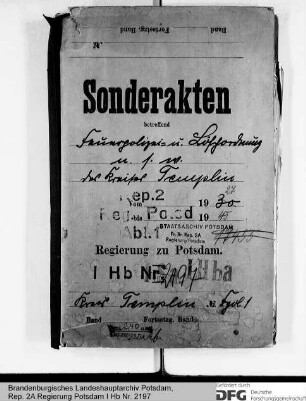 Fortsetzg. Band Band
№
Sonderakten
betreffend
Feuerpolizei- u. Löschordnung
u. s. w.
des Kreises Templin
Rep. 2
vom 1930
Reg. bis Potsd 19
Abt. I
STAATSARCHIV POTSDAM
Pr. Br. Rep. 2A
Regierung Potsdam
Regierung zu Potsdam.
I Hb Nr. 2197
Kreis Templin №
Band Fortsetzg. Bande
Brandenburgisches Landeshauptarchiv Potsdam,
Rep. 2A Regierung Potsdam I Hb Nr. 2197
Gefördert durch
DFG Deutsche
Forschungsgemeinschaft